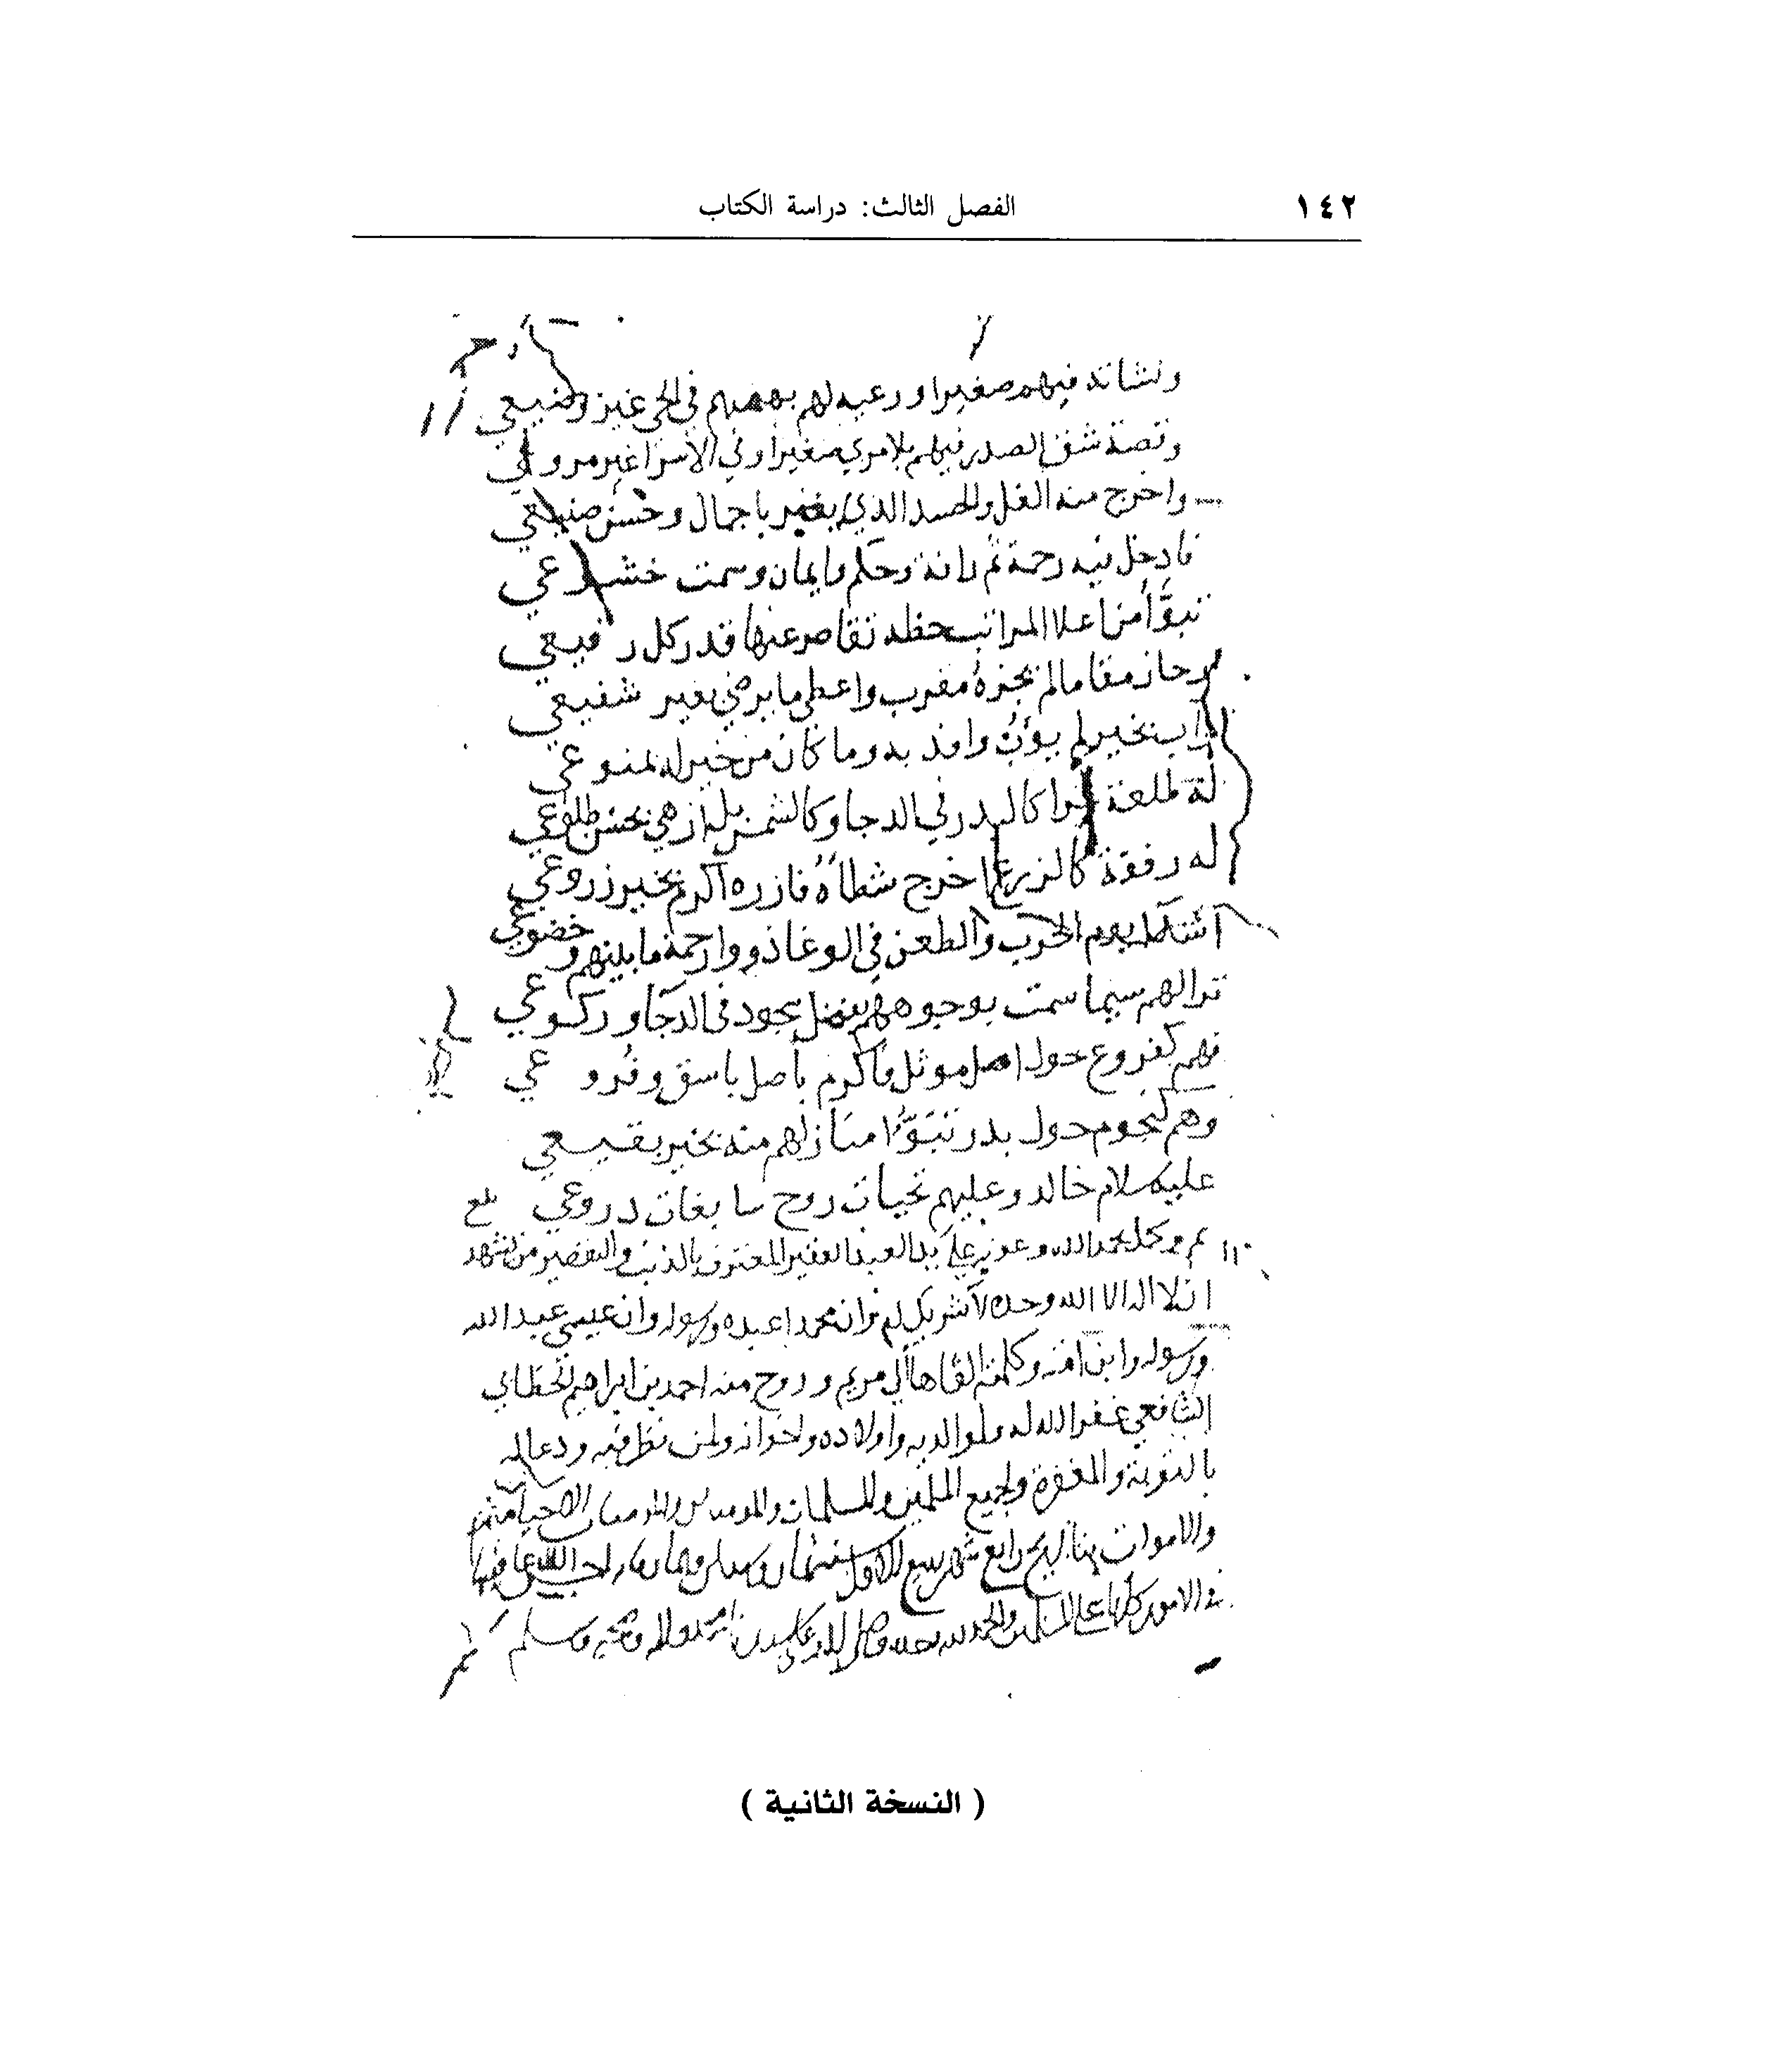 ١٤٢
الفصل الثالث: دراسة الكتاب
ونشاته فيهم صغيرا ورعيه لهم بهمهم في الحي غير وضيعي
وقصة شق الصدر فيهم بلا مري صغيرا وفي الاسرا غير مروعي
واخرج منه الغل والحسد الذي يغير باجمال وحسن صنيعي
فادخل فيه رحمة ثم رافة وحكم وايمان وسمت خشوعي
تبوَّأ من اعلا المراتب حظه تقاصر عنها قدر كل رفيعي
وحاز مقاما لم يحزه مقرب واعطي ما يرضي بغير شفيعي
بخير لم يؤب وافد به وما كان من خير له بمنوعي
له طلعة غرا كالبدر في الدجا وكالشمس بل ازهي بحسن طلوعي
له رفقة كالزرع اخرج شطأه فازره اكرم بخير زروعي
اشدا يوم الحرب والطعن في الوغا ذووا رحمة ما بينهم وخضوعي
ترا لهم سيما سمت بوجوههم بفضل سجود في الدجا وركوعي
فهم كفروع حول اصل موثل فاكرم باصل باسق وفروعي
وهم كنجوم حول بدر تبوَّا منازلهم منه بخير بقيعي
عليه سلام خالد وعليهم تحيات روح سابغات دروعي بلغ
تم وكمل بحمد الله وعونه علي يد العبد الفقير المعترف بالذنب والتقصير من يشهد
ان لا اله الا الله وحده لا شريك له وان محمدا عبده ورسوله وان عيسي عبد الله
ورسوله وابن امته وكلمته القاها الي مريم وروح منه احمد بن ابراهيم
الشافعي غفر الله له ولوالديه واولاده واخوانه ولمن نظر فيه ودعا له
بالتوبة والمغفرة ولجميع المسلمين والمسلمات والمومنين والمومنات الاحيا منهم
والاموات بتاريخ رابع شهر ربيع الاول
الامور كلها علي المسلمين والحمد لله وحده وصلي الله علي سيدنا محمد واله وصحبه وسلم
( النسخة الثانية )